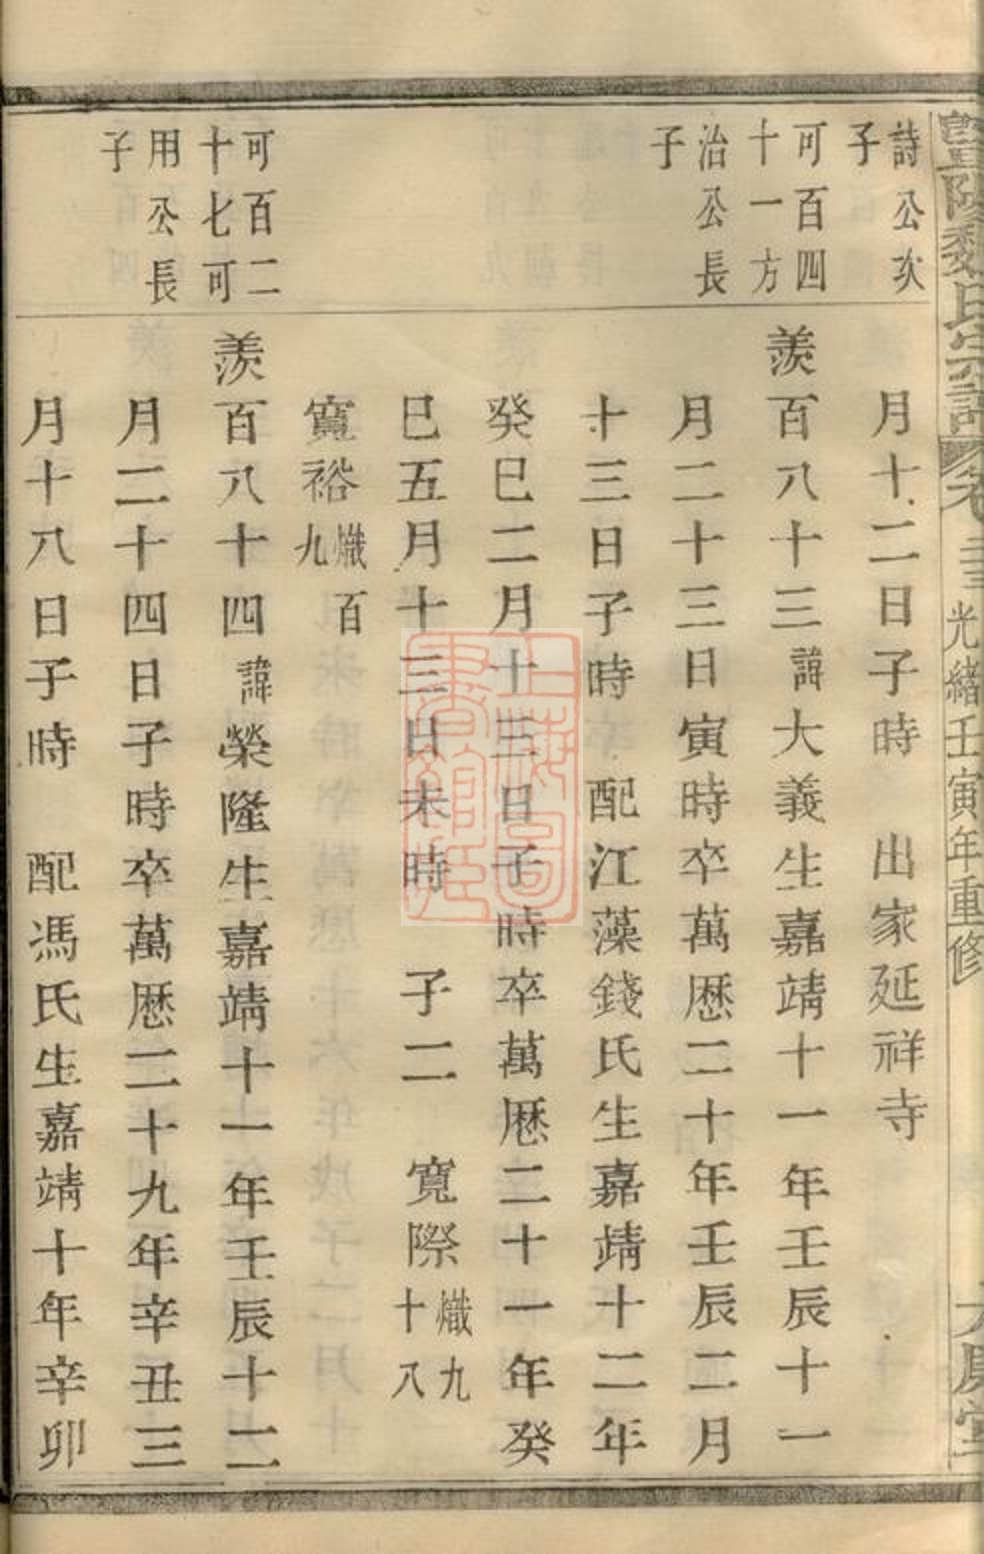 暨陽魏氏宗譜 卷 光緒壬寅年重修
詩公次
子
月十二日子時 出家延祥寺
可百四
十一方
治公長
子
羨百八十三諱大義生嘉靖十一年壬辰十一
月二十三日寅時卒萬歷二十年壬辰二月
十三日子時 配江藻錢氏生嘉靖十二年
癸巳二月十三日子時卒萬歷二十一年癸
巳五月十三日未時 子二 寬際熾九十八
寬裕熾百九
可百二
十七可
用公長
子
羨百八十四諱榮隆生嘉靖十一年壬辰十二
月二十四日子時卒萬歷二十九年辛丑三
月十八日子時 配馮氏生嘉靖十年辛卯
上海圖
書館藏